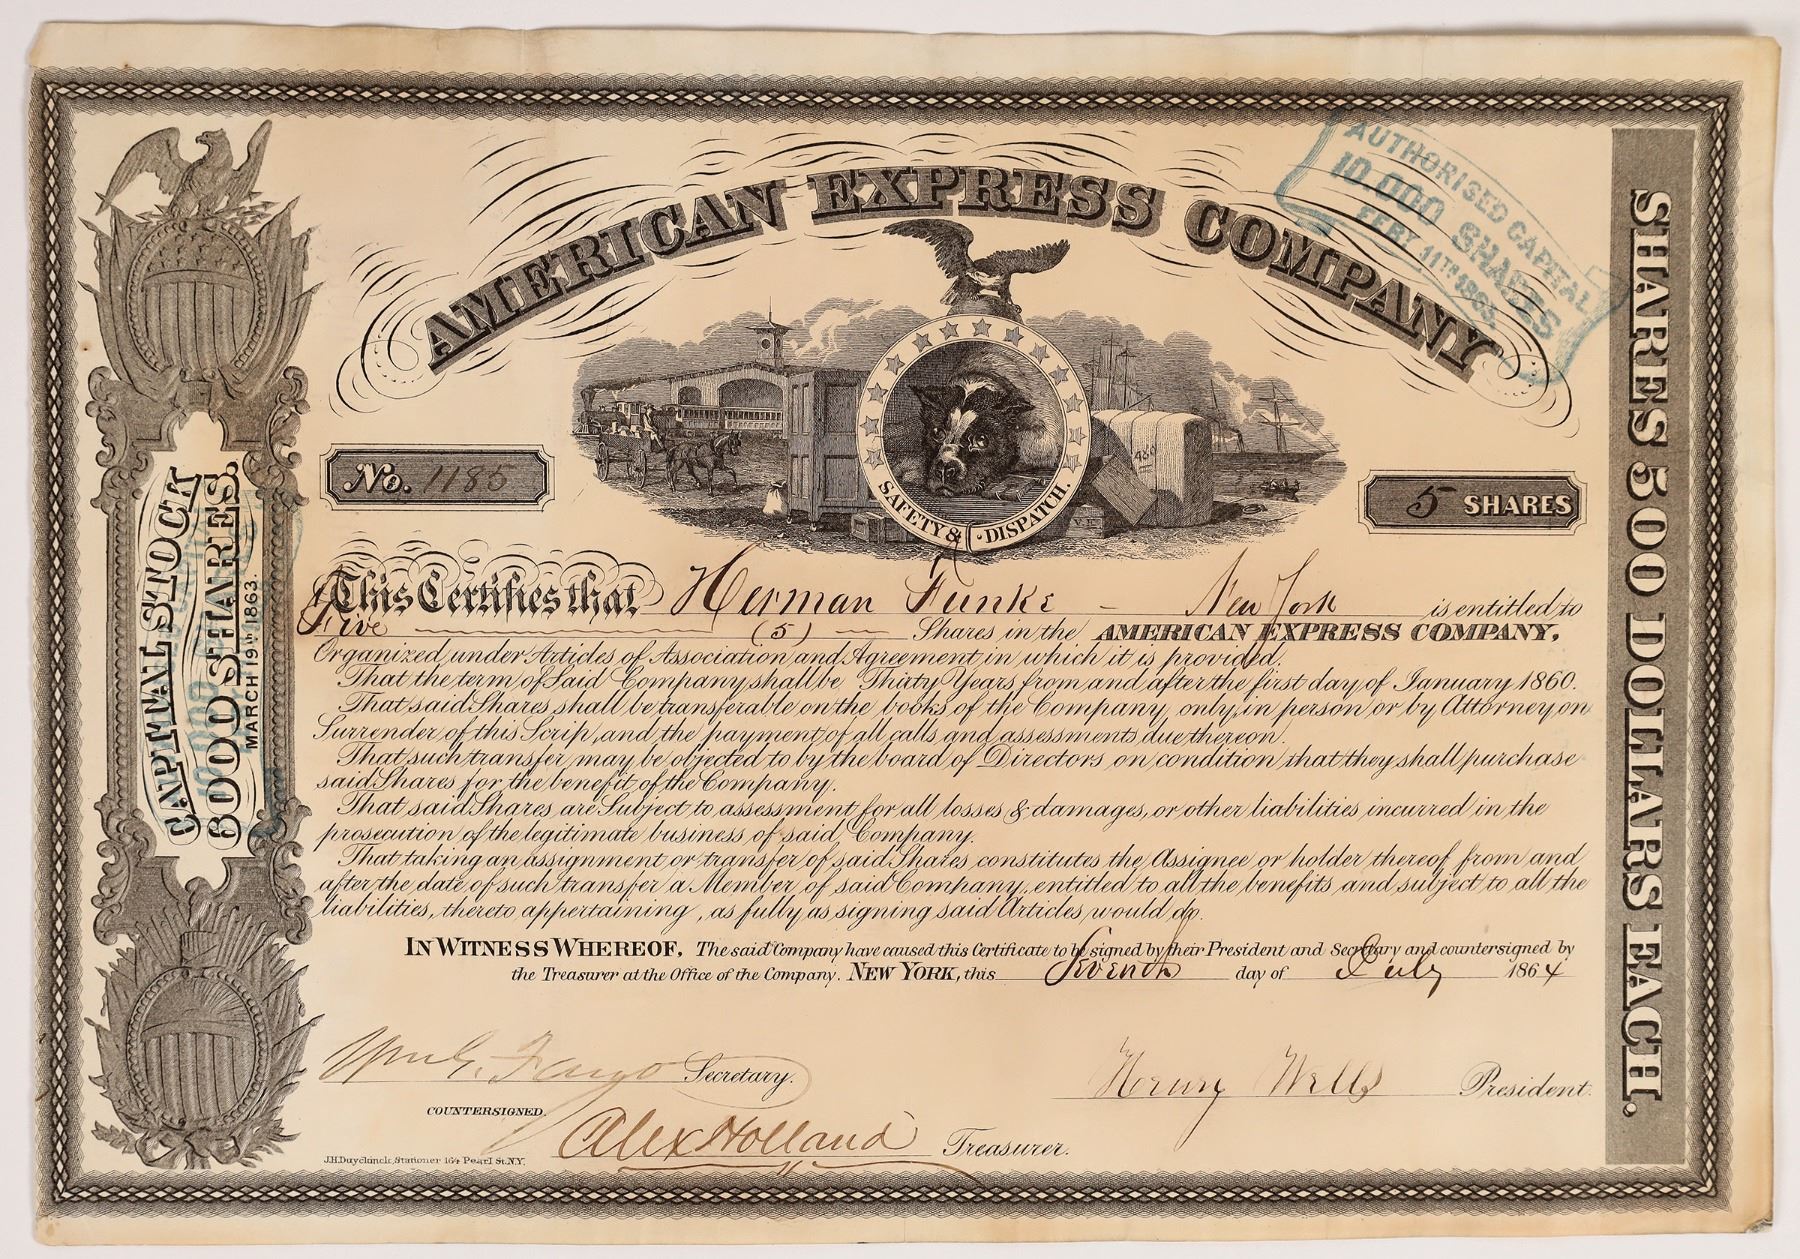 AMERICAN EXPRESS COMPANY
AUTHORISED CAPITAL
10,000 SHARES
FEBY. 11TH 1865.
SAFETY & DISPATCH.
480
No. 1185
5 SHARES
This Certifies that Herman Funke – New York is entitled to
Five (5) Shares in the AMERICAN EXPRESS COMPANY,
Organized under Articles of Association and Agreement in which it is provided.
That the term of Said Company shall be Thirty Years from and after the first day of January 1860.
That said Shares shall be transferable on the books of the Company, only, in person or by Attorney on
Surrender of this Scrip, and the payment of all calls and assessments due thereon.
That such transfer may be objected to by the board of Directors on condition that they shall purchase
said Shares for the benefit of the Company.
That said Shares are Subject to assessment for all losses & damages, or other liabilities incurred in the
prosecution of the legitimate business of said Company.
That taking an assignment or transfer of said Shares constitutes the Assignee or holder thereof from and
after the date of such transfer a Member of said Company, entitled to all the benefits and subject to all the
liabilities, thereto appertaining, as fully as signing said Articles would do.
IN WITNESS WHEREOF, The said Company have caused this Certificate to be signed by their President and Secretary and countersigned by
the Treasurer at the Office of the Company. NEW YORK, this Seventh day of July 1864
Wm G. Fargo Secretary.
Henry Wells President.
COUNTERSIGNED.
Alex Holland Treasurer.
J.H. Duyckinck, Stationer 164 Pearl St. N.Y.
CAPITAL STOCK
6000 SHARES.
MARCH 19TH 1863.
SHARES 500 DOLLARS EACH.